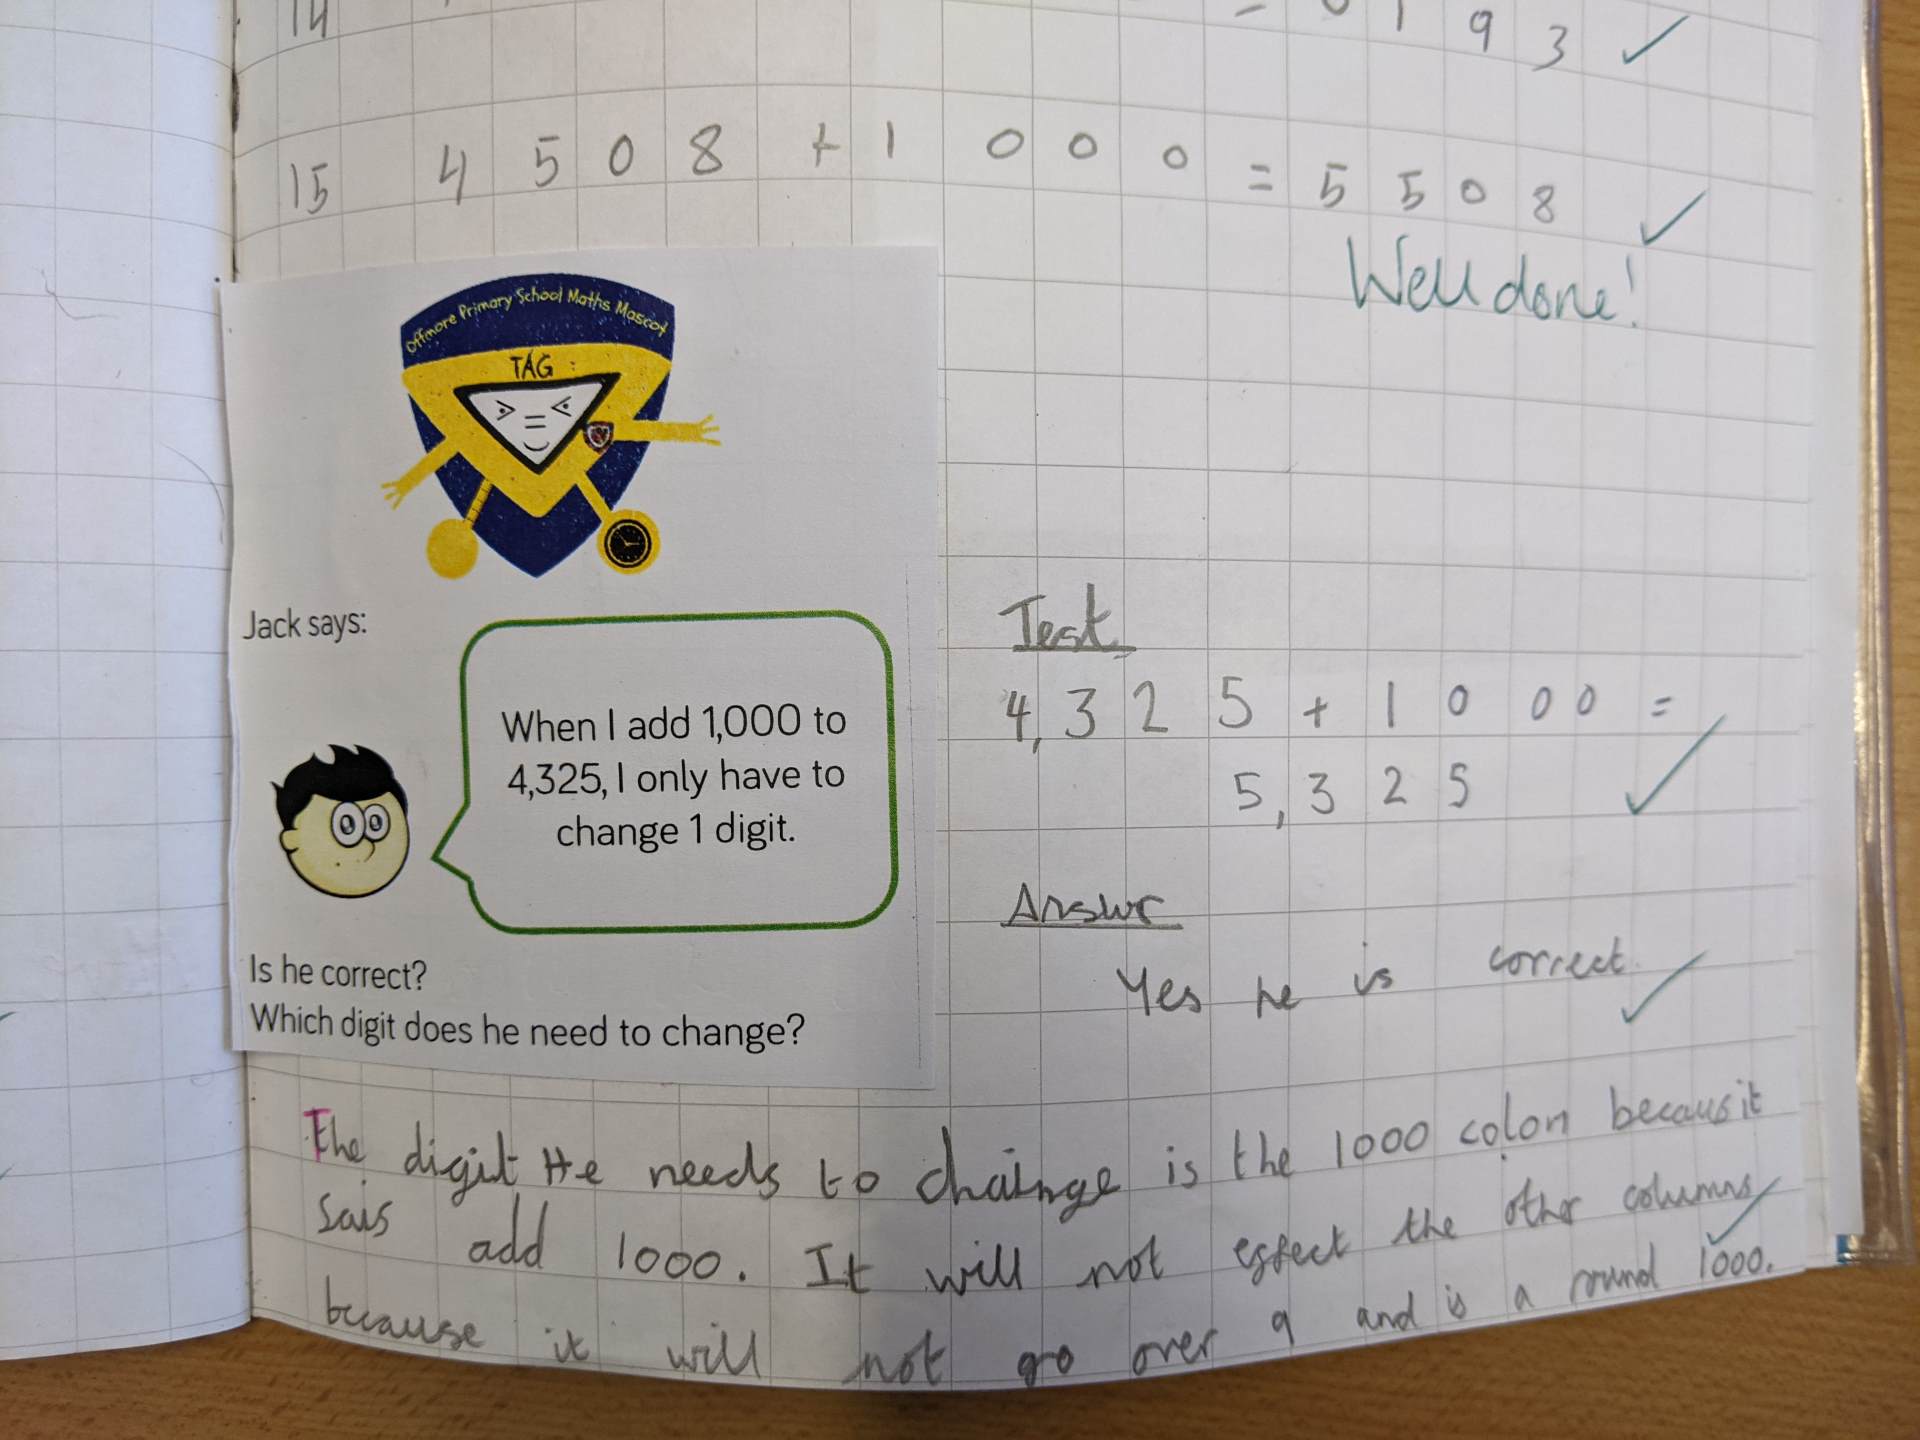 14 = 0 1 9 3
15 4 5 0 8 + 1 0 0 0 = 5 5 0 8
Well done!
Offmore Primary School Maths Mascot
TAG
Jack says:
When I add 1,000 to
4,325, I only have to
change 1 digit.
Is he correct?
Which digit does he need to change?
Test
4,3 2 5 + 1 0 0 0 =
5,3 2 5
Answr
Yes he is correct.
The digit He needs to chainge is the 1000 colon becaus it
sais add 1000. It will not effect the other columns
because it will not go over 9 and is a round 1000.